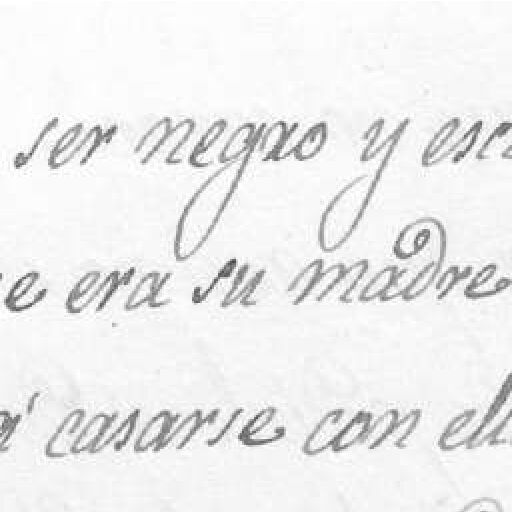 ser negro y esc
e era su madre
a casarse con ell